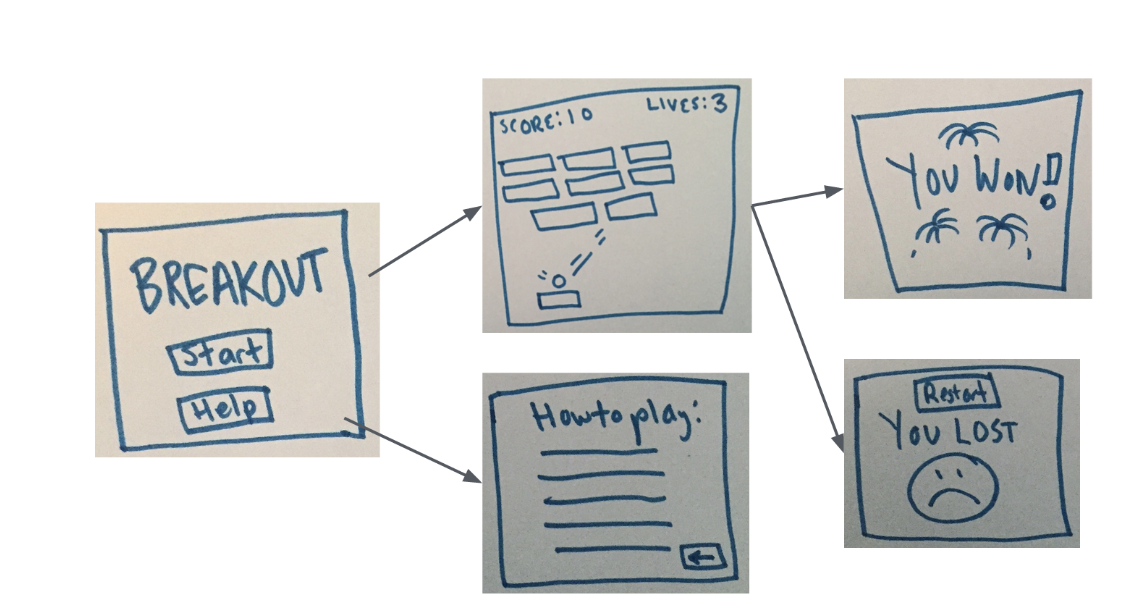 BREAKOUT
Start
Help
SCORE: 10
LIVES: 3
How to play:
YOU WON!
Restart
YOU LOST